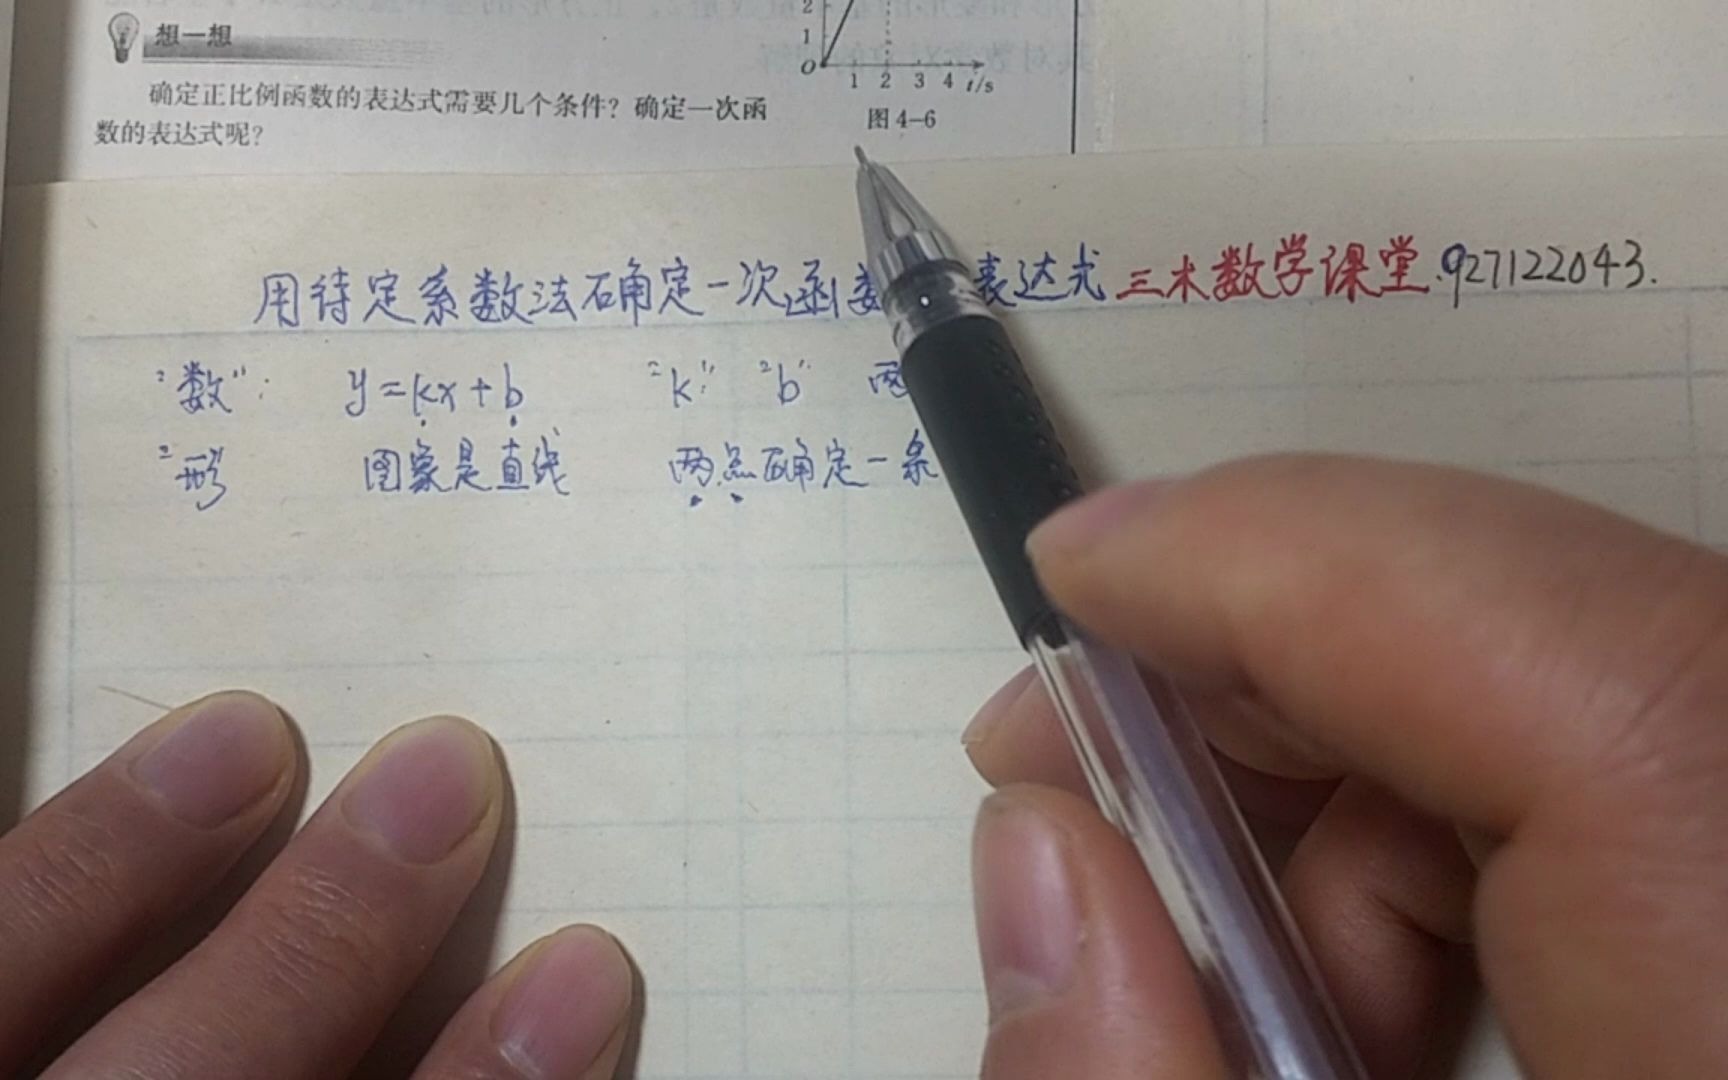 想一想
确定正比例函数的表达式需要几个条件？确定一次函
数的表达式呢？
2
1
O 1 2 3 4 t/s
图4-6
用待定系数法确定一次函数 表达式 三木数学课堂.927122043.
"数": y=kx+b "k" "b" 两
"形 图象是直线 两点确定一条